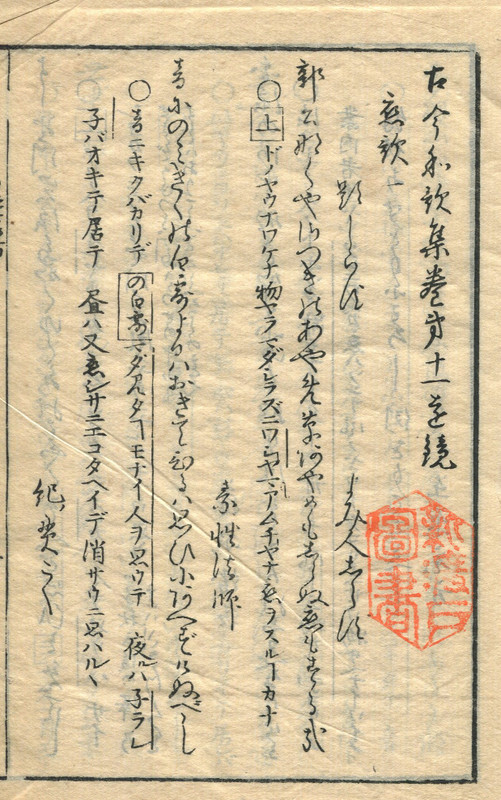 古今和歌集巻第十一遠鏡
恋歌一
題しらず
よみ人しらず
郭公なくや五月のあやめ草あやめもしらぬ恋もする哉
○上ドノヤウナワケナ物ヤラマダシラズニワシヤマアムチヤナ恋ヲスルコトカナ
素性法師
音にのみきくの白露よるはおきてひるは思ひにあへずけぬべし
○音ニキクバカリデの白露マダ見タコトモナイ人ヲ思ウテ 夜ルハ子ラレ
子バオキテ居テ 昼ハ又恋シサニエコタヘイデ消サウニ思ハルヽ
紀貫之
新渡戸圖書